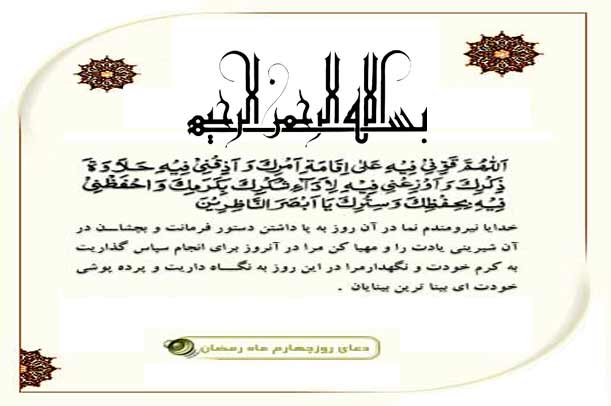 بسم الله الرحمن الرحیم
اَللّهُمَّ قَوِّنی فیهِ عَلی اِقامَةِ اَمْرِکَ وَ اَذِقْنی فیهِ حَلاوَةَ
ذِکْرِکَ وَ اَوْزِعْنی فیهِ لِاَداءِ شُکْرِکَ بِکَرَمِکَ وَ احْفَظْنی
فیهِ بِحِفْظِکَ وَ سِتْرِکَ یا اَبْصَرَ النّاظِرینَ
خدایا نیرومندم نما در آن روز به پا داشتن دستور فرمانت و بچشان در
آن شیرینی یادت را و مهیا کن مرا در آنروز برای انجام سپاس گذاریت
به کرم خودت و نگهدارمرا در این روز به نگاه داریت و پرده پوشی
خودت ای بینا ترین بینایان .
دعای روزچهارم ماه رمضان